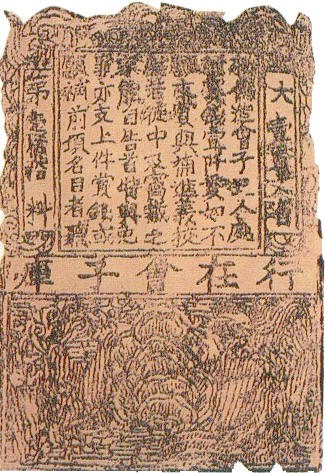 大壹貫文省
敕偽造會子犯人處
賞錢壹阡貫如不
支賞與補進義校
徒中及窩藏之
家能自告首特與免
罪亦支上件賞錢或
願補前項名目者聽
第料
行在會子庫